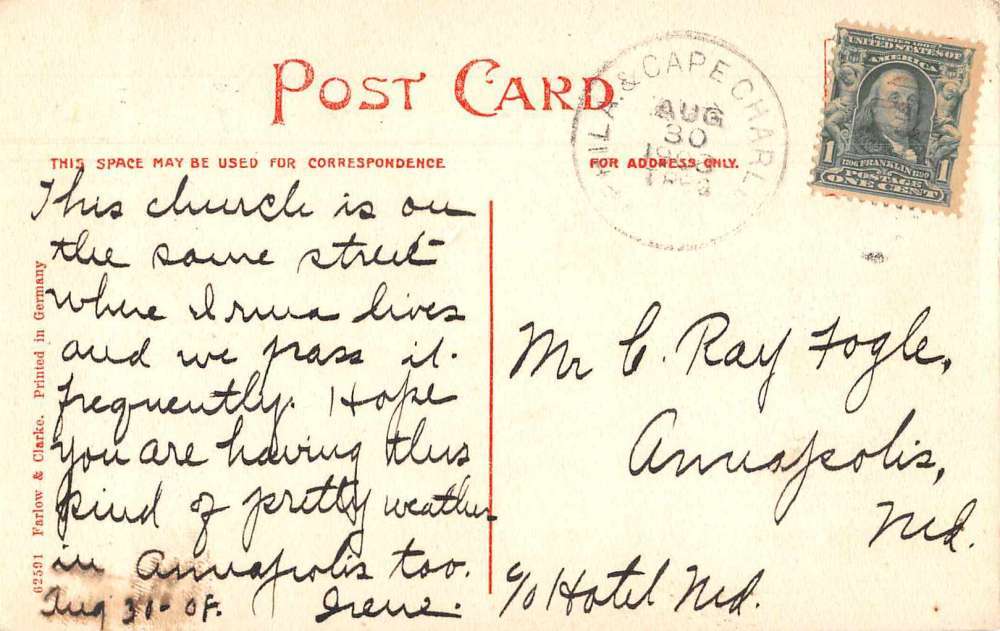 POST CARD
THIS SPACE MAY BE USED FOR CORRESPONDENCE
FOR ADDRESS ONLY.
PHILA. & CAPE CHARL
AUG
30
SERIES 1902
UNITED STATES OF
AMERICA
1706 FRANKLIN 1790
1 POSTAGE 1
ONE CENT
This church is on
the same street
where Irma lives
and we pass it
frequently. Hope
you are having this
kind of pretty weather
in Annapolis too.
Aug 31-08. Irene.
Mr C. Ray Fogle,
Annapolis,
Md.
c/o Hotel Md.
62591 Farlow & Clarke. Printed in Germany